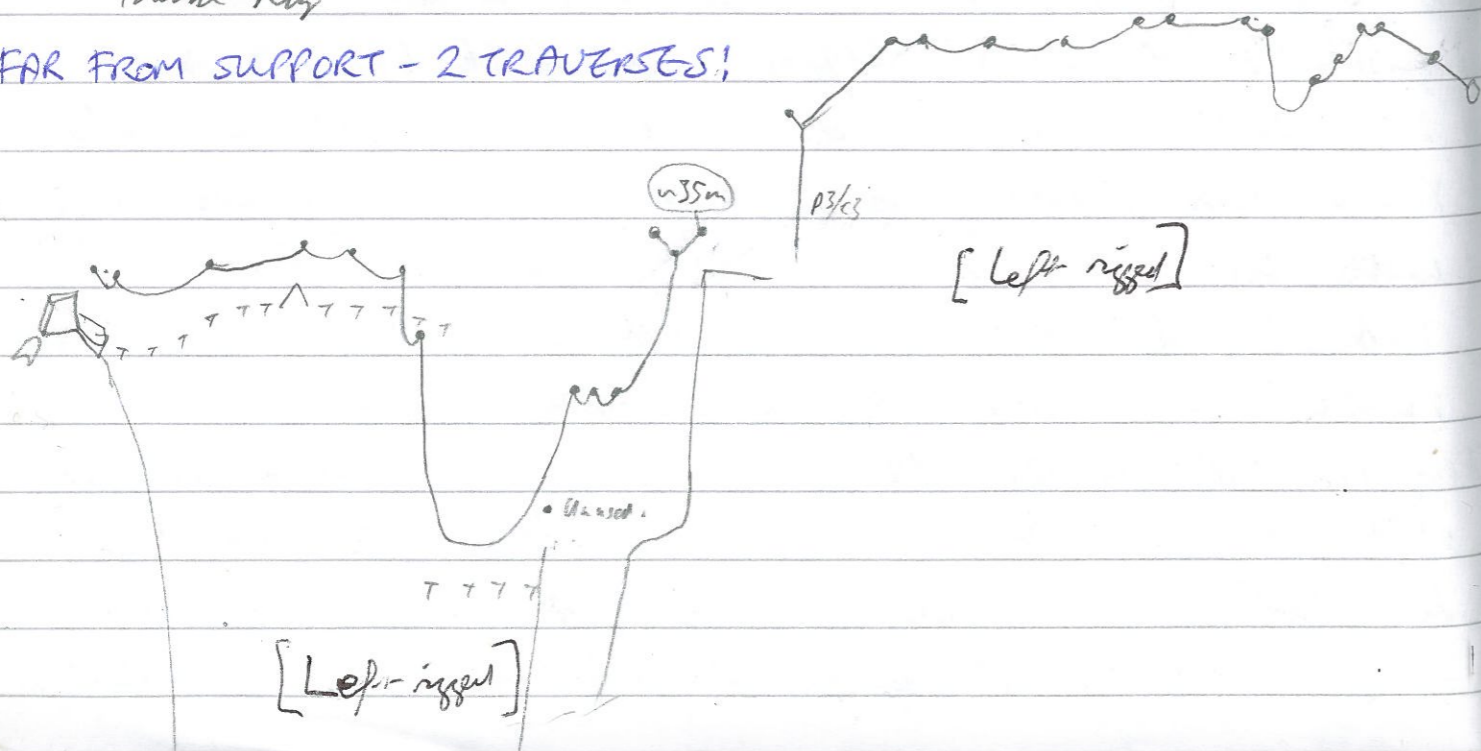 FAR FROM SUPPORT - 2 TRAVERSES!
~35m
P3/c3
[Left rigged]
Unused.
[Left rigged]